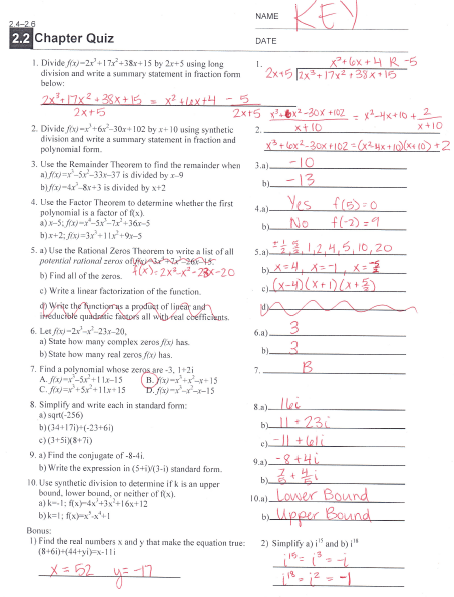 2.4-2.6
NAME KEY
2.2 Chapter Quiz
DATE
1. Divide f(x)=2x³+17x²+38x+15 by 2x+5 using long
division and write a summary statement in fraction form
below:
1. x²+6x+4 R -5
2x+5 2x³+17x²+38x+15
2x³+17x²+38x+15 = x²+6x+4 - 5
2x+5 2x+5
2. Divide f(x)=x³+6x²-30x+102 by x+10 using synthetic
division and write a summary statement in fraction and
polynomial form.
2. x³+6x²-30x+102 = x²-4x+10 + 2
x+10 x+10
x³+6x²-30x+102=(x²-4x+10)(x+10)+2
3. Use the Remainder Theorem to find the remainder when
a) f(x)=x³-5x²-33x-37 is divided by x-9
b) f(x)=4x³-8x+3 is divided by x+2
3.a) -10
b) -13
4. Use the Factor Theorem to determine whether the first
polynomial is a factor of f(x).
a) x-5; f(x)=x⁴-5x³-7x²+36x-5
b) x+2; f(x)=3x³+11x²+9x-5
4.a) Yes f(5)=0
b) No f(-2)=9
5. a) Use the Rational Zeros Theorem to write a list of all
potential rational zeros of
f(x)=2x³-x²-23x-20
b) Find all of the zeros.
c) Write a linear factorization of the function.
d) Write the function as a product of linear and
irreducible quadratic factors all with real coefficients.
5.a) ±½, 5/2, 1, 2, 4, 5, 10, 20
b) x=4, x=-1, x=-5/2
c) (x-4)(x+1)(x+5/2)
d)
6. Let f(x)=2x³-x²-23x-20,
a) State how many complex zeros f(x) has.
b) State how many real zeros f(x) has.
6.a) 3
b) 3
7. Find a polynomial whose zeros are -3, 1+2i
A. f(x)=x³-5x²+11x-15 B. f(x)=x³+x²-x+15
C. f(x)=x³+5x²+11x+15 D. f(x)=x³-x²-x-15
7. B
8. Simplify and write each in standard form:
a) sqrt(-256)
b) (34+17i)+(-23+6i)
c) (3+5i)(8+7i)
8.a) 16i
b) 11+23i
c) -11+61i
9. a) Find the conjugate of -8-4i.
b) Write the expression in (5+i)/(3-i) standard form.
9.a) -8+4i
b) 7/5 + 4/5 i
10. Use synthetic division to determine if k is an upper
bound, lower bound, or neither of f(x).
a) k=-1; f(x)=4x³+3x²+16x+12
b) k=1; f(x)=x⁵-x⁴+1
10.a) Lower Bound
b) Upper Bound
Bonus:
1) Find the real numbers x and y that make the equation true:
(8+6i)+(44+yi)=x-11i
x=52 y=-17
2) Simplify a) i¹⁵ and b) i¹⁸
i¹⁵=i³=-i
i¹⁸=i²=-1